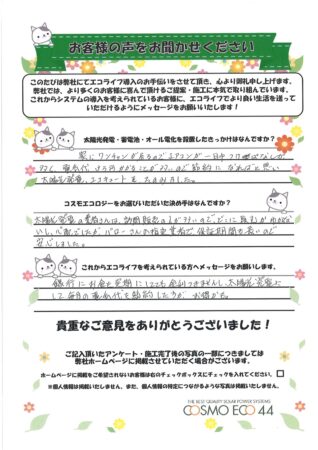 お客様の声をお聞かせください
このたびは弊社にてエコライフ導入のお手伝いをさせて頂き、心より御礼申し上げます。
弊社では、より多くのお客様に喜んで頂けるご提案・施工に本気で取り組んでいます。
これからシステムの導入を考えられているお客様に、エコライフでより良い生活を送って
いただけるようにメッセージをお願いいたします！
太陽光発電・蓄電池・オール電化を設置したきっかけはなんですか？
家にワンチャンが居るのでエアコンが一日中つけっぱなしが
多く、電気代
太陽光発電、エコキュートを
コスモエコロジーをお選びいただいた決め手はなんですか？
太陽光発電の業者さんは、訪問販売
い、心配でしたが バローさんの指定業者で保証期間も長いので
安心しました。
これからエコライフを考えられている方へメッセージをお願いします。
銀行にお金を定期にしていても金利つきませんし、太陽光発電
して毎月の電気代を節約した方が、お得かも。
貴重なご意見をありがとうございました！
ご記入頂いたアンケート・施工完了後の写真の一部につきましては
弊社ホームページに掲載させていただく場合がございます。
ホームページに掲載をご希望されないお客様は右のチェックボックスにチェックを入れてください。
※個人情報は掲載いたしません。また、個人情報の特定につながるような写真は掲載いたしません。
THE BEST QUALITY SOLAR POWER SYSTEMS
COSMO ECO 44